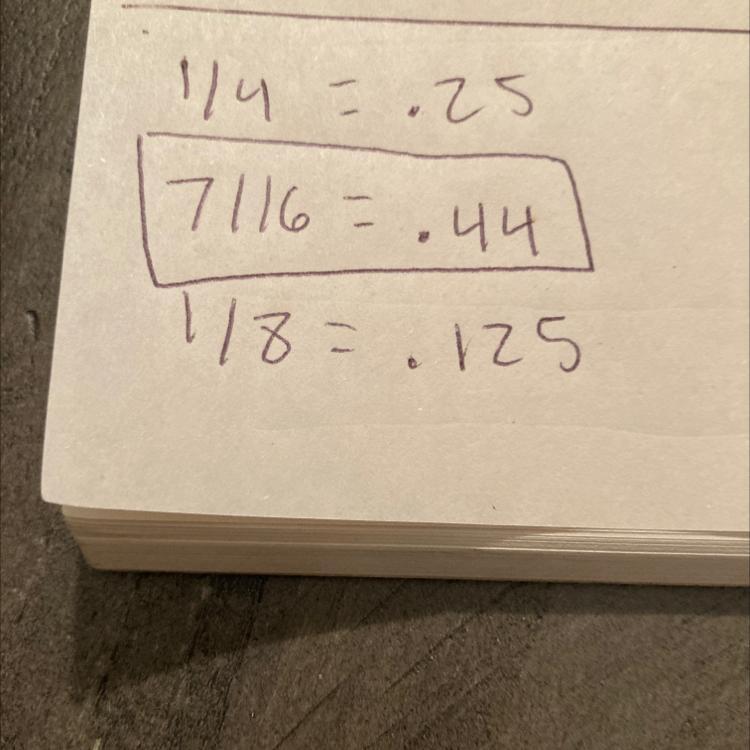 1/4 = .25
7/16 = .44
1/8 = .125